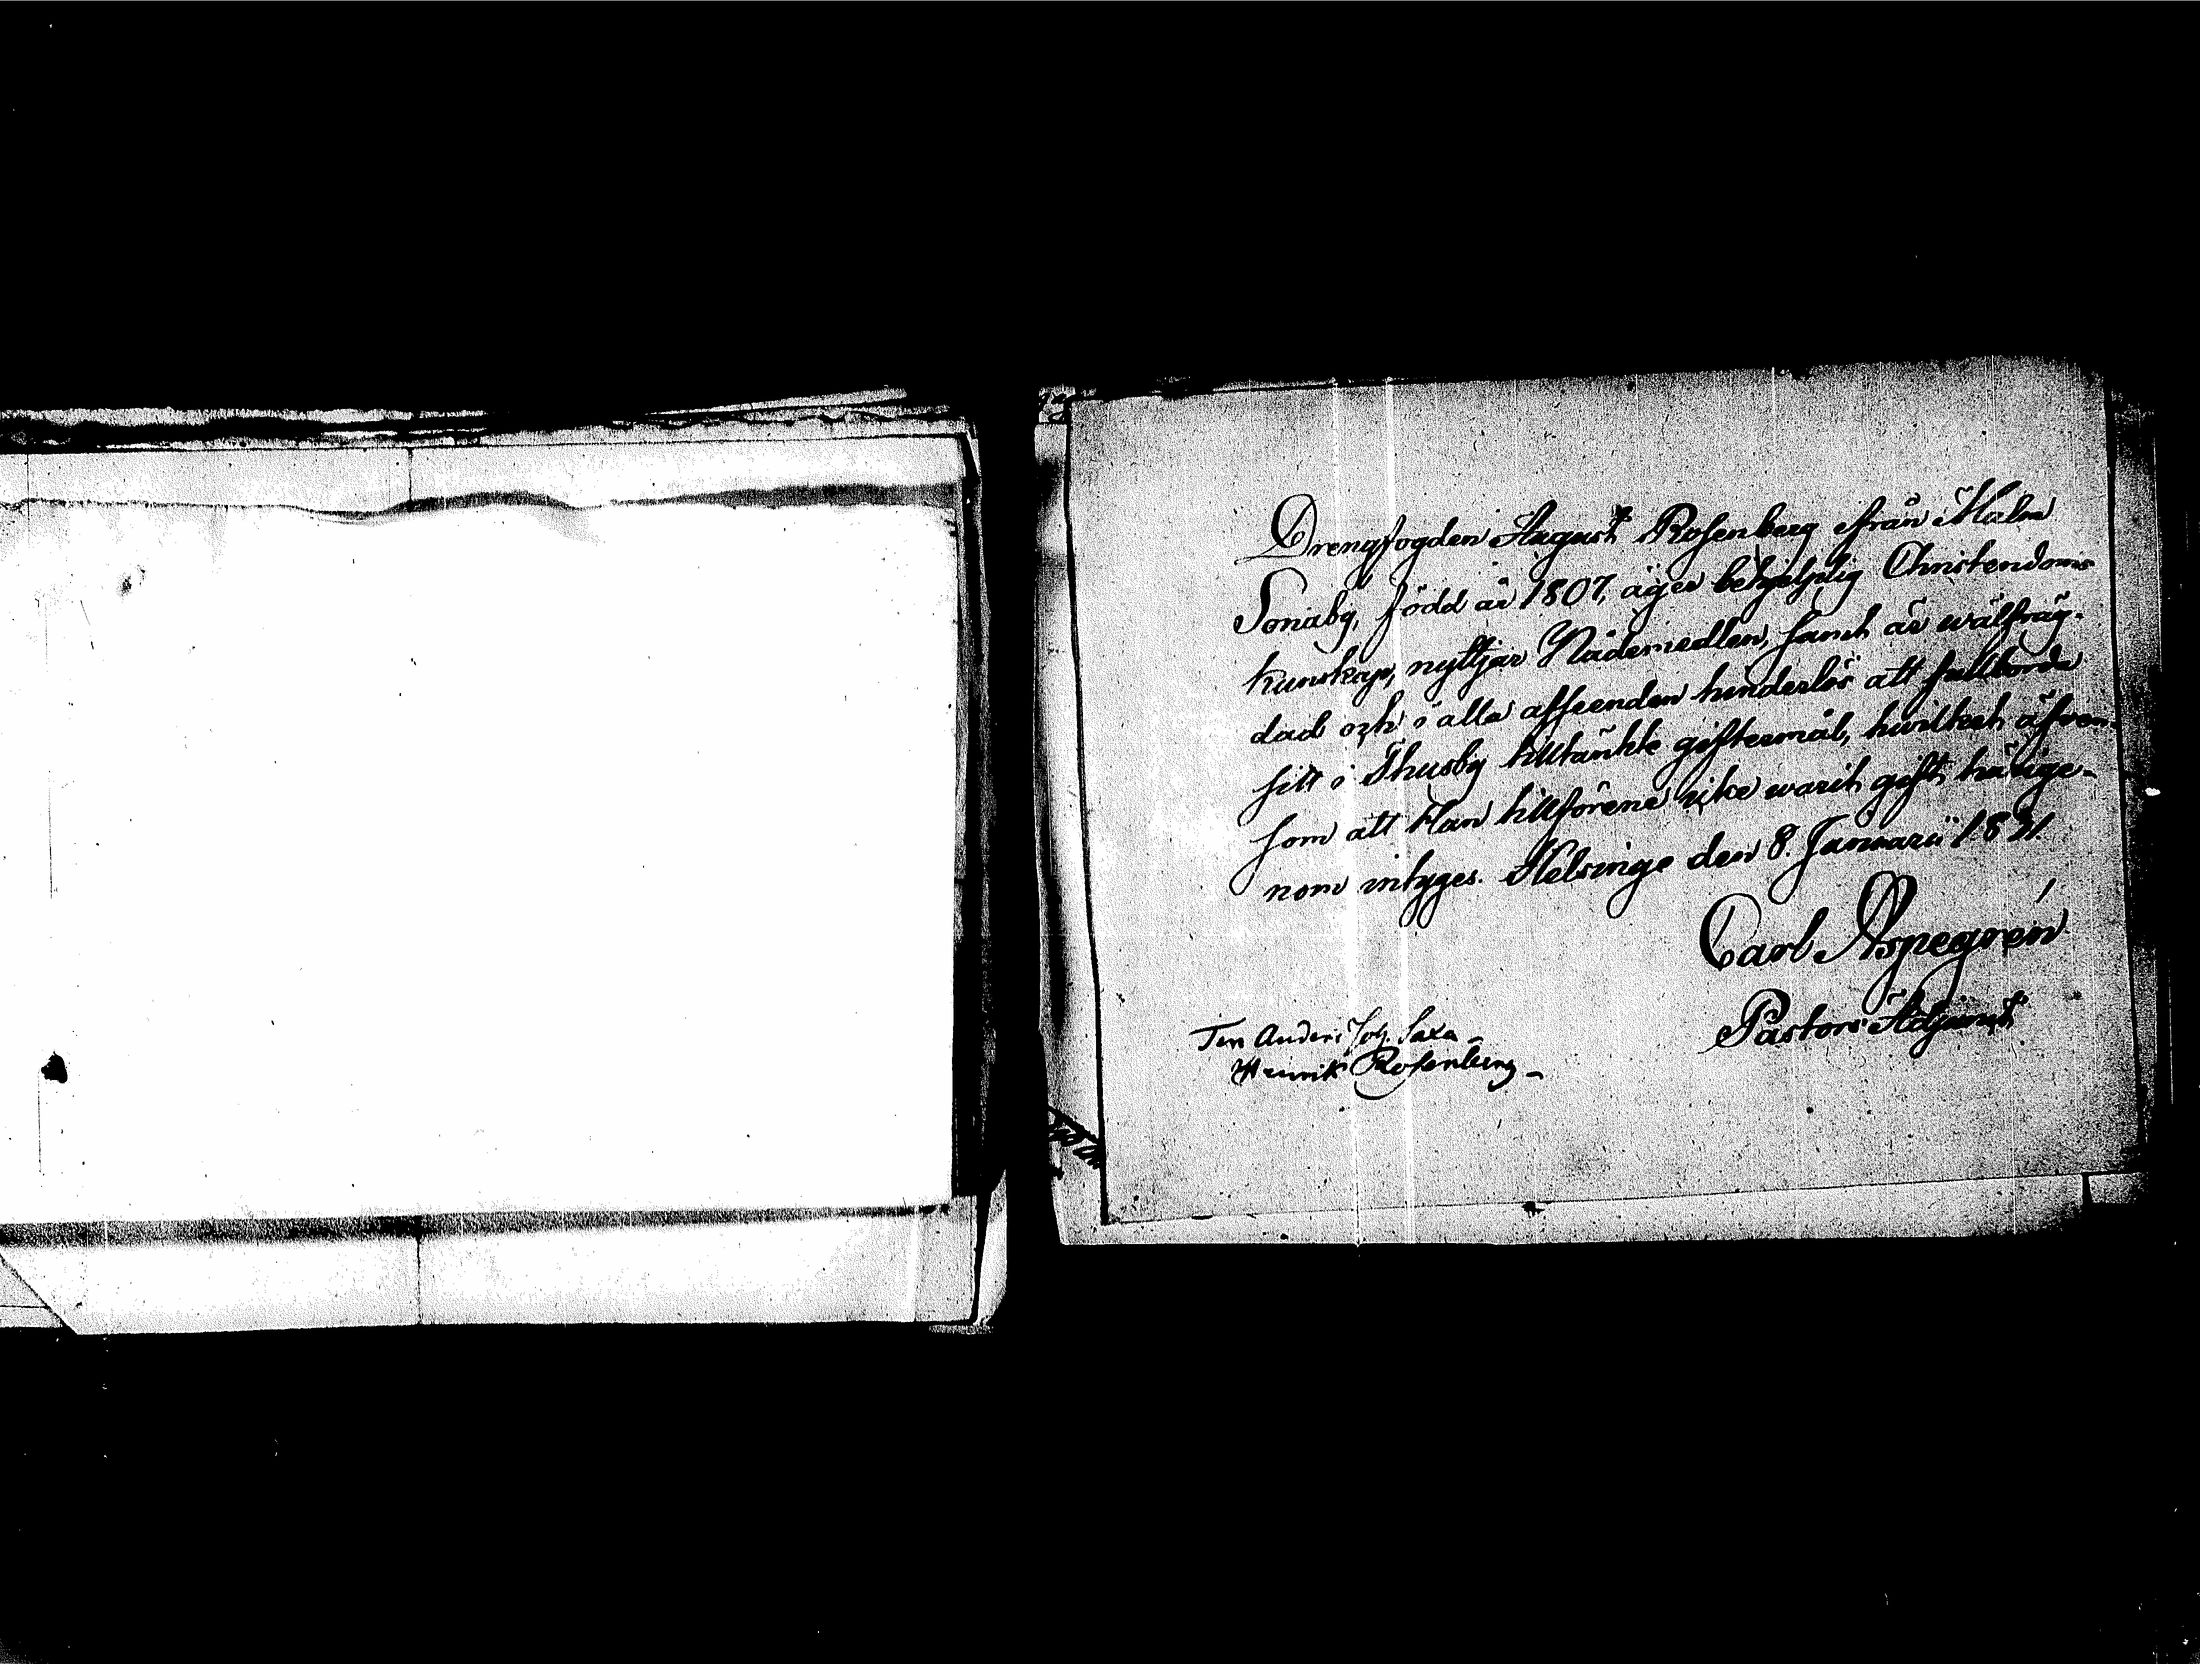 Drengfogden August Rosenberg ifrån Malm
Sonäby, född år 1807, äger behjelplig Christendoms
kunskap, nyttjar Nådemedlen, samt är wälfräg-
dad och i alla afseenden hinderlös att fullborda
sitt i Thusby tilltänkte giftermål, hwilket äfven-
som att Han tillförene icke warit gift, härige-
nom intyges. Helsinge den 8. Januarii 1831.
Carl Aspegrén
Pastors Adjunct
Joh. Saxa
Henrik Rosenberg